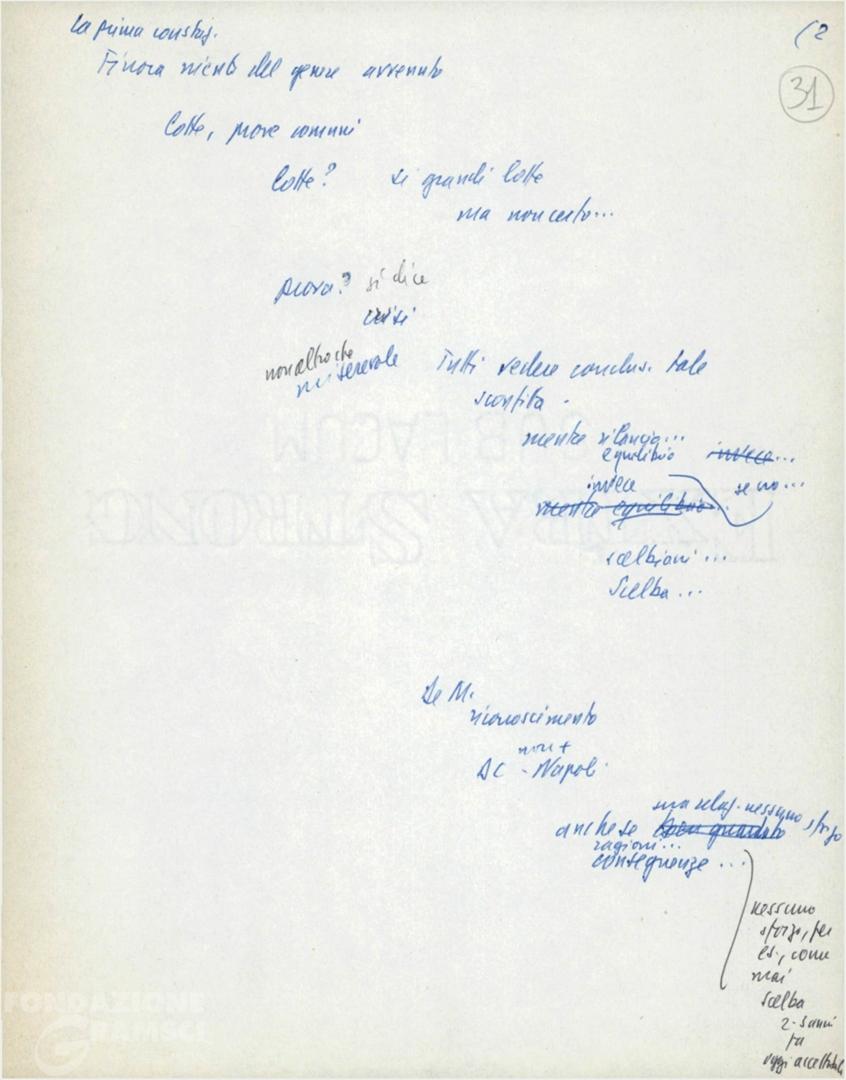 (2
31
La prima constaz.
Finora niente del genere avvenuto
Lotte, prove comuni
Lotte? Si grandi lotte
ma non certo...
prova? si dice
crisi
non altro che
miserevole
Tutti vedere conclus. tale
sconfitta -
mentre rilancio...
equilibrio invece...
invece se no...
mentre equilibrio...
scelbiani...
Scelba...
De M.
riconoscimento
non +
DC - Napoli
ma relaz. nessuno sforzo
anche se
ragioni...
conseguenze...
nessuno
sforzo, per
es., come
mai
Scelba
2-3 anni
fa
oggi
FONDAZIONE
GRAMSCI
EXTRA STRONG
SUB LACUM